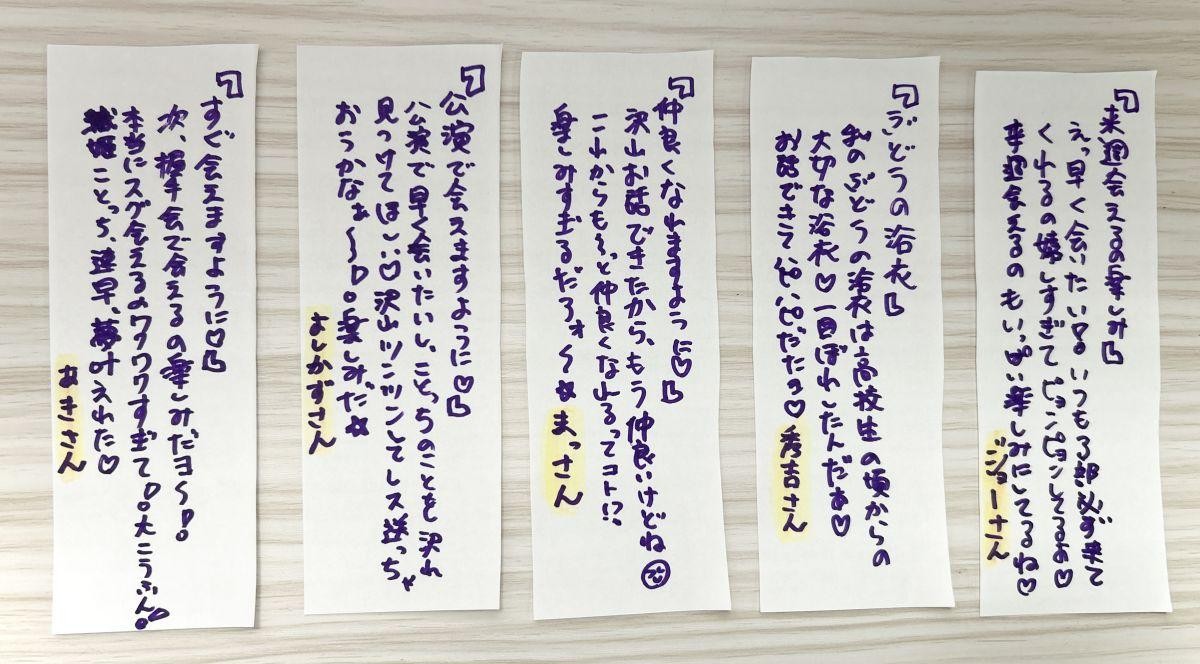 「来週会えるの楽しみ」
えっ早く会いたい!! いつも3部必ず来て
くれるの嬉しすぎてピョンピョンしてるよ♡
来週会えるのもいっぱい楽しみにしてるね♡
ジョーさん
「ぶどうの浴衣」
あのぶどうの浴衣は高校生の頃からの
大切な浴衣♡一目ぼれしたんだあ♡
お話できてハッピーだったヨ♡
秀吉さん
「仲良くなれますように♡」
沢山お話できたから、もう仲良いけどね
これからも〜っと仲良くなれるってコト!?
楽しみすぎるだろォ〜☆
まっさん
「公演で会えますように♡」
公演で早く会いたいし、ことっちのことを沢れ
見つけてほしい♡沢山ツンツンしてレス送っちゃ
おうかなぁ〜!!楽しみだ☆
よしかずさん
「すぐ会えますように♡」
次、握手会で会えるの楽しみだヨ〜!!
本当にスグ会えるのワクワクすぎて!!大こうふん!!
ことっち、速早、夢叶えれた♡
あきさん